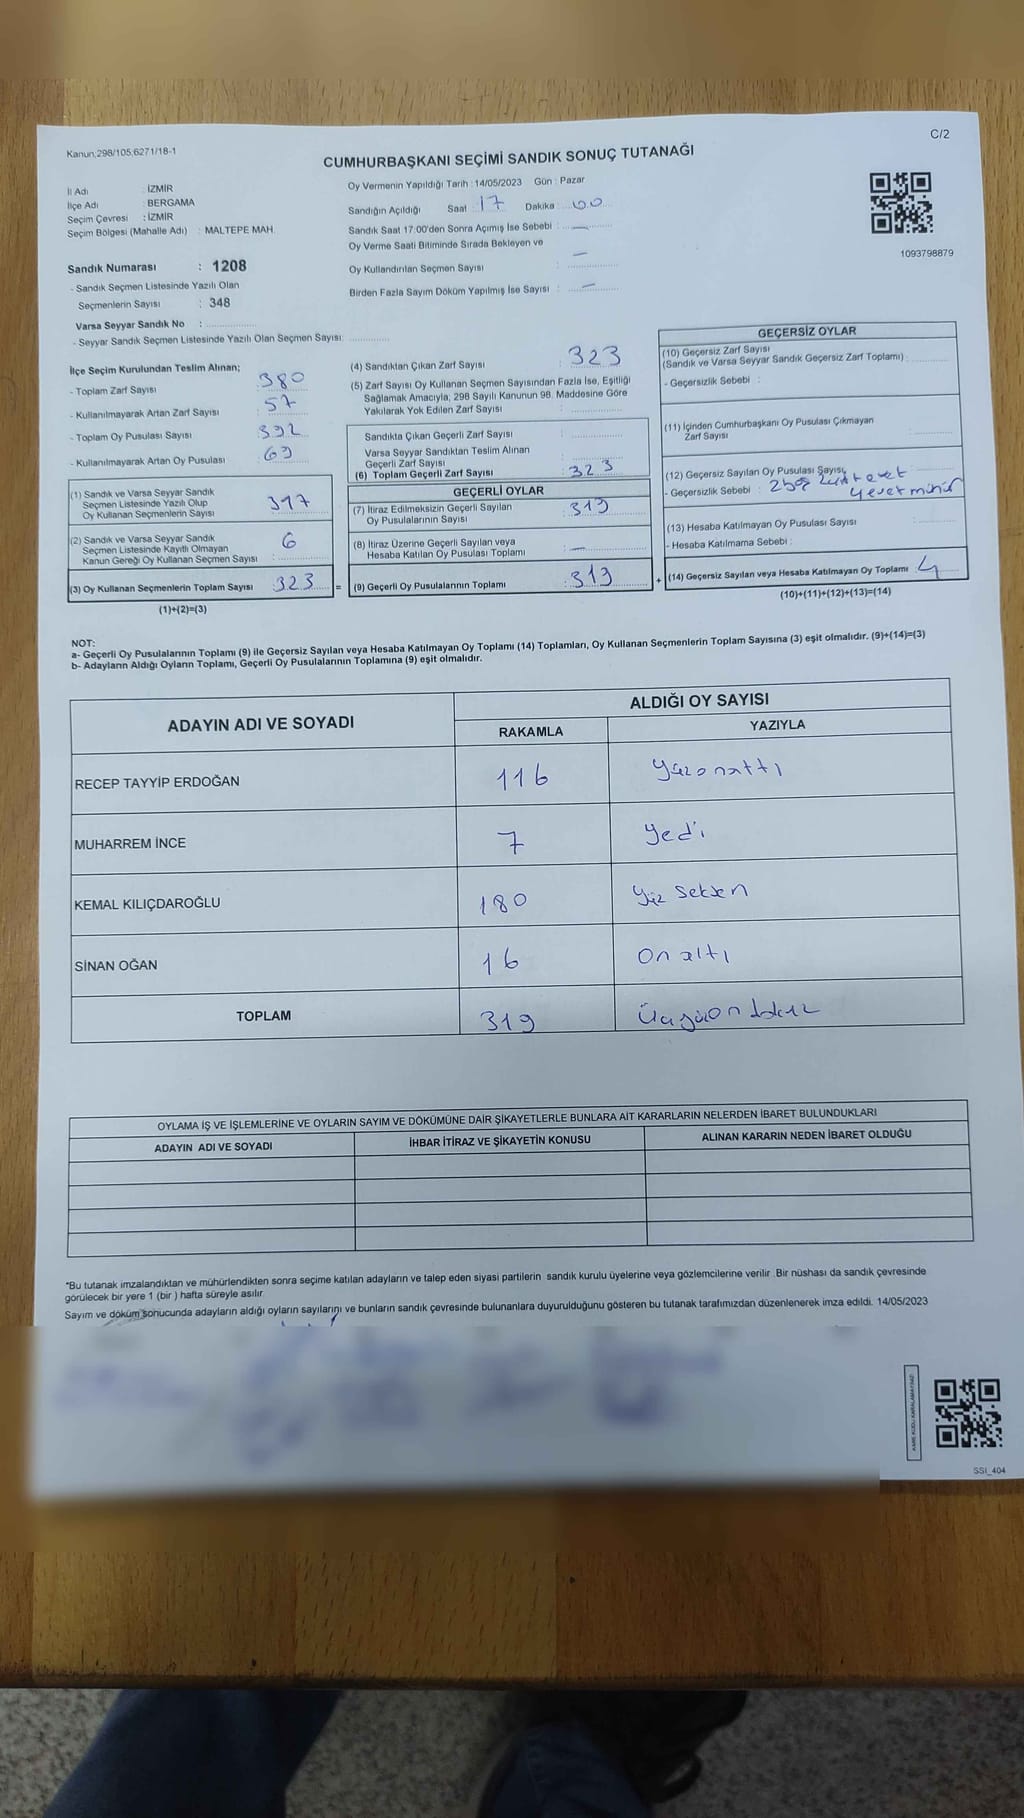 C/2
Kanun,298/105,6271/18-1
CUMHURBAŞKANI SEÇİMİ SANDIK SONUÇ TUTANAĞI
İl Adı : İZMİR
İlçe Adı : BERGAMA
Seçim Çevresi : İZMİR
Seçim Bölgesi (Mahalle Adı) : MALTEPE MAH.
Sandık Numarası : 1208
- Sandık Seçmen Listesinde Yazılı Olan
Seçmenlerin Sayısı : 348
Varsa Seyyar Sandık No :
- Seyyar Sandık Seçmen Listesinde Yazılı Olan Seçmen Sayısı:
Oy Vermenin Yapıldığı Tarih : 14/05/2023 Gün : Pazar
Sandığın Açıldığı Saat 17 Dakika 00
Sandık Saat 17:00'den Sonra Açımış İse Sebebi : —
Oy Verme Saati Bitiminde Sırada Bekleyen ve
Oy Kullandırılan Seçmen Sayısı : —
Birden Fazla Sayım Döküm Yapılmış İse Sayısı : —
1093798879
İlçe Seçim Kurulundan Teslim Alınan;
- Toplam Zarf Sayısı : 380
- Kullanılmayarak Artan Zarf Sayısı : 57
- Toplam Oy Pusulası Sayısı : 392
- Kullanılmayarak Artan Oy Pusulası : 69
(1) Sandık ve Varsa Seyyar Sandık
Seçmen Listesinde Yazılı Olup
Oy Kullanan Seçmenlerin Sayısı 317
(2) Sandık ve Varsa Seyyar Sandık
Seçmen Listesinde Kayıtlı Olmayan
Kanun Gereği Oy Kullanan Seçmen Sayısı : 6
(3) Oy Kullanan Seçmenlerin Toplam Sayısı 323 =
(1)+(2)=(3)
(4) Sandıktan Çıkan Zarf Sayısı : 323
(5) Zarf Sayısı Oy Kullanan Seçmen Sayısından Fazla İse, Eşitliği
Sağlamak Amacıyla, 298 Sayılı Kanunun 98. Maddesine Göre
Yakılarak Yok Edilen Zarf Sayısı :
Sandıkta Çıkan Geçerli Zarf Sayısı :
Varsa Seyyar Sandıktan Teslim Alınan
Geçerli Zarf Sayısı :
(6) Toplam Geçerli Zarf Sayısı : 323
GEÇERLİ OYLAR
(7) İtiraz Edilmeksizin Geçerli Sayılan
Oy Pusulalarının Sayısı : 319
(8) İtiraz Üzerine Geçerli Sayılan veya
Hesaba Katılan Oy Pusulası Toplamı : —
(9) Geçerli Oy Pusulalarının Toplamı : 319 +
GEÇERSİZ OYLAR
(10) Geçersiz Zarf Sayısı
(Sandık ve Varsa Seyyar Sandık Geçersiz Zarf Toplamı) :
- Geçersizlik Sebebi :
(11) İçinden Cumhurbaşkanı Oy Pusulası Çıkmayan
Zarf Sayısı :
(12) Geçersiz Sayılan Oy Pusulası Sayısı
- Geçersizlik Sebebi : evet
evet mühür
(13) Hesaba Katılmayan Oy Pusulası Sayısı :
- Hesaba Katılmama Sebebi :
(14) Geçersiz Sayılan veya Hesaba Katılmayan Oy Toplamı : 4
(10)+(11)+(12)+(13)=(14)
NOT:
a- Geçerli Oy Pusulalarının Toplamı (9) ile Geçersiz Sayılan veya Hesaba Katılmayan Oy Toplamı (14) Toplamları, Oy Kullanan Seçmenlerin Toplam Sayısına (3) eşit olmalıdır. (9)+(14)=(3)
b- Adayların Aldığı Oyların Toplamı, Geçerli Oy Pusulalarının Toplamına (9) eşit olmalıdır.
ADAYIN ADI VE SOYADI
ALDIĞI OY SAYISI
RAKAMLA YAZIYLA
RECEP TAYYİP ERDOĞAN 116 Yüzonaltı
MUHARREM İNCE 7 Yedi
KEMAL KILIÇDAROĞLU 180 Yüz Seksen
SİNAN OĞAN 16 On altı
TOPLAM 319 Üçyüzondokuz
OYLAMA İŞ VE İŞLEMLERİNE VE OYLARIN SAYIM VE DÖKÜMÜNE DAİR ŞİKAYETLERLE BUNLARA AİT KARARLARIN NELERDEN İBARET BULUNDUKLARI
ADAYIN ADI VE SOYADI İHBAR İTİRAZ VE ŞİKAYETİN KONUSU ALINAN KARARIN NEDEN İBARET OLDUĞU
*Bu tutanak imzalandıktan ve mühürlendikten sonra seçime katılan adayların ve talep eden siyasi partilerin sandık kurulu üyelerine veya gözlemcilerine verilir. Bir nüshası da sandık çevresinde
görülecek bir yere 1 (bir ) hafta süreyle asılır.
Sayım ve döküm sonucunda adayların aldığı oyların sayılarını ve bunların sandık çevresinde bulunanlara duyurulduğunu gösteren bu tutanak tarafımızdan düzenlenerek imza edildi. 14/05/2023
SSI_404